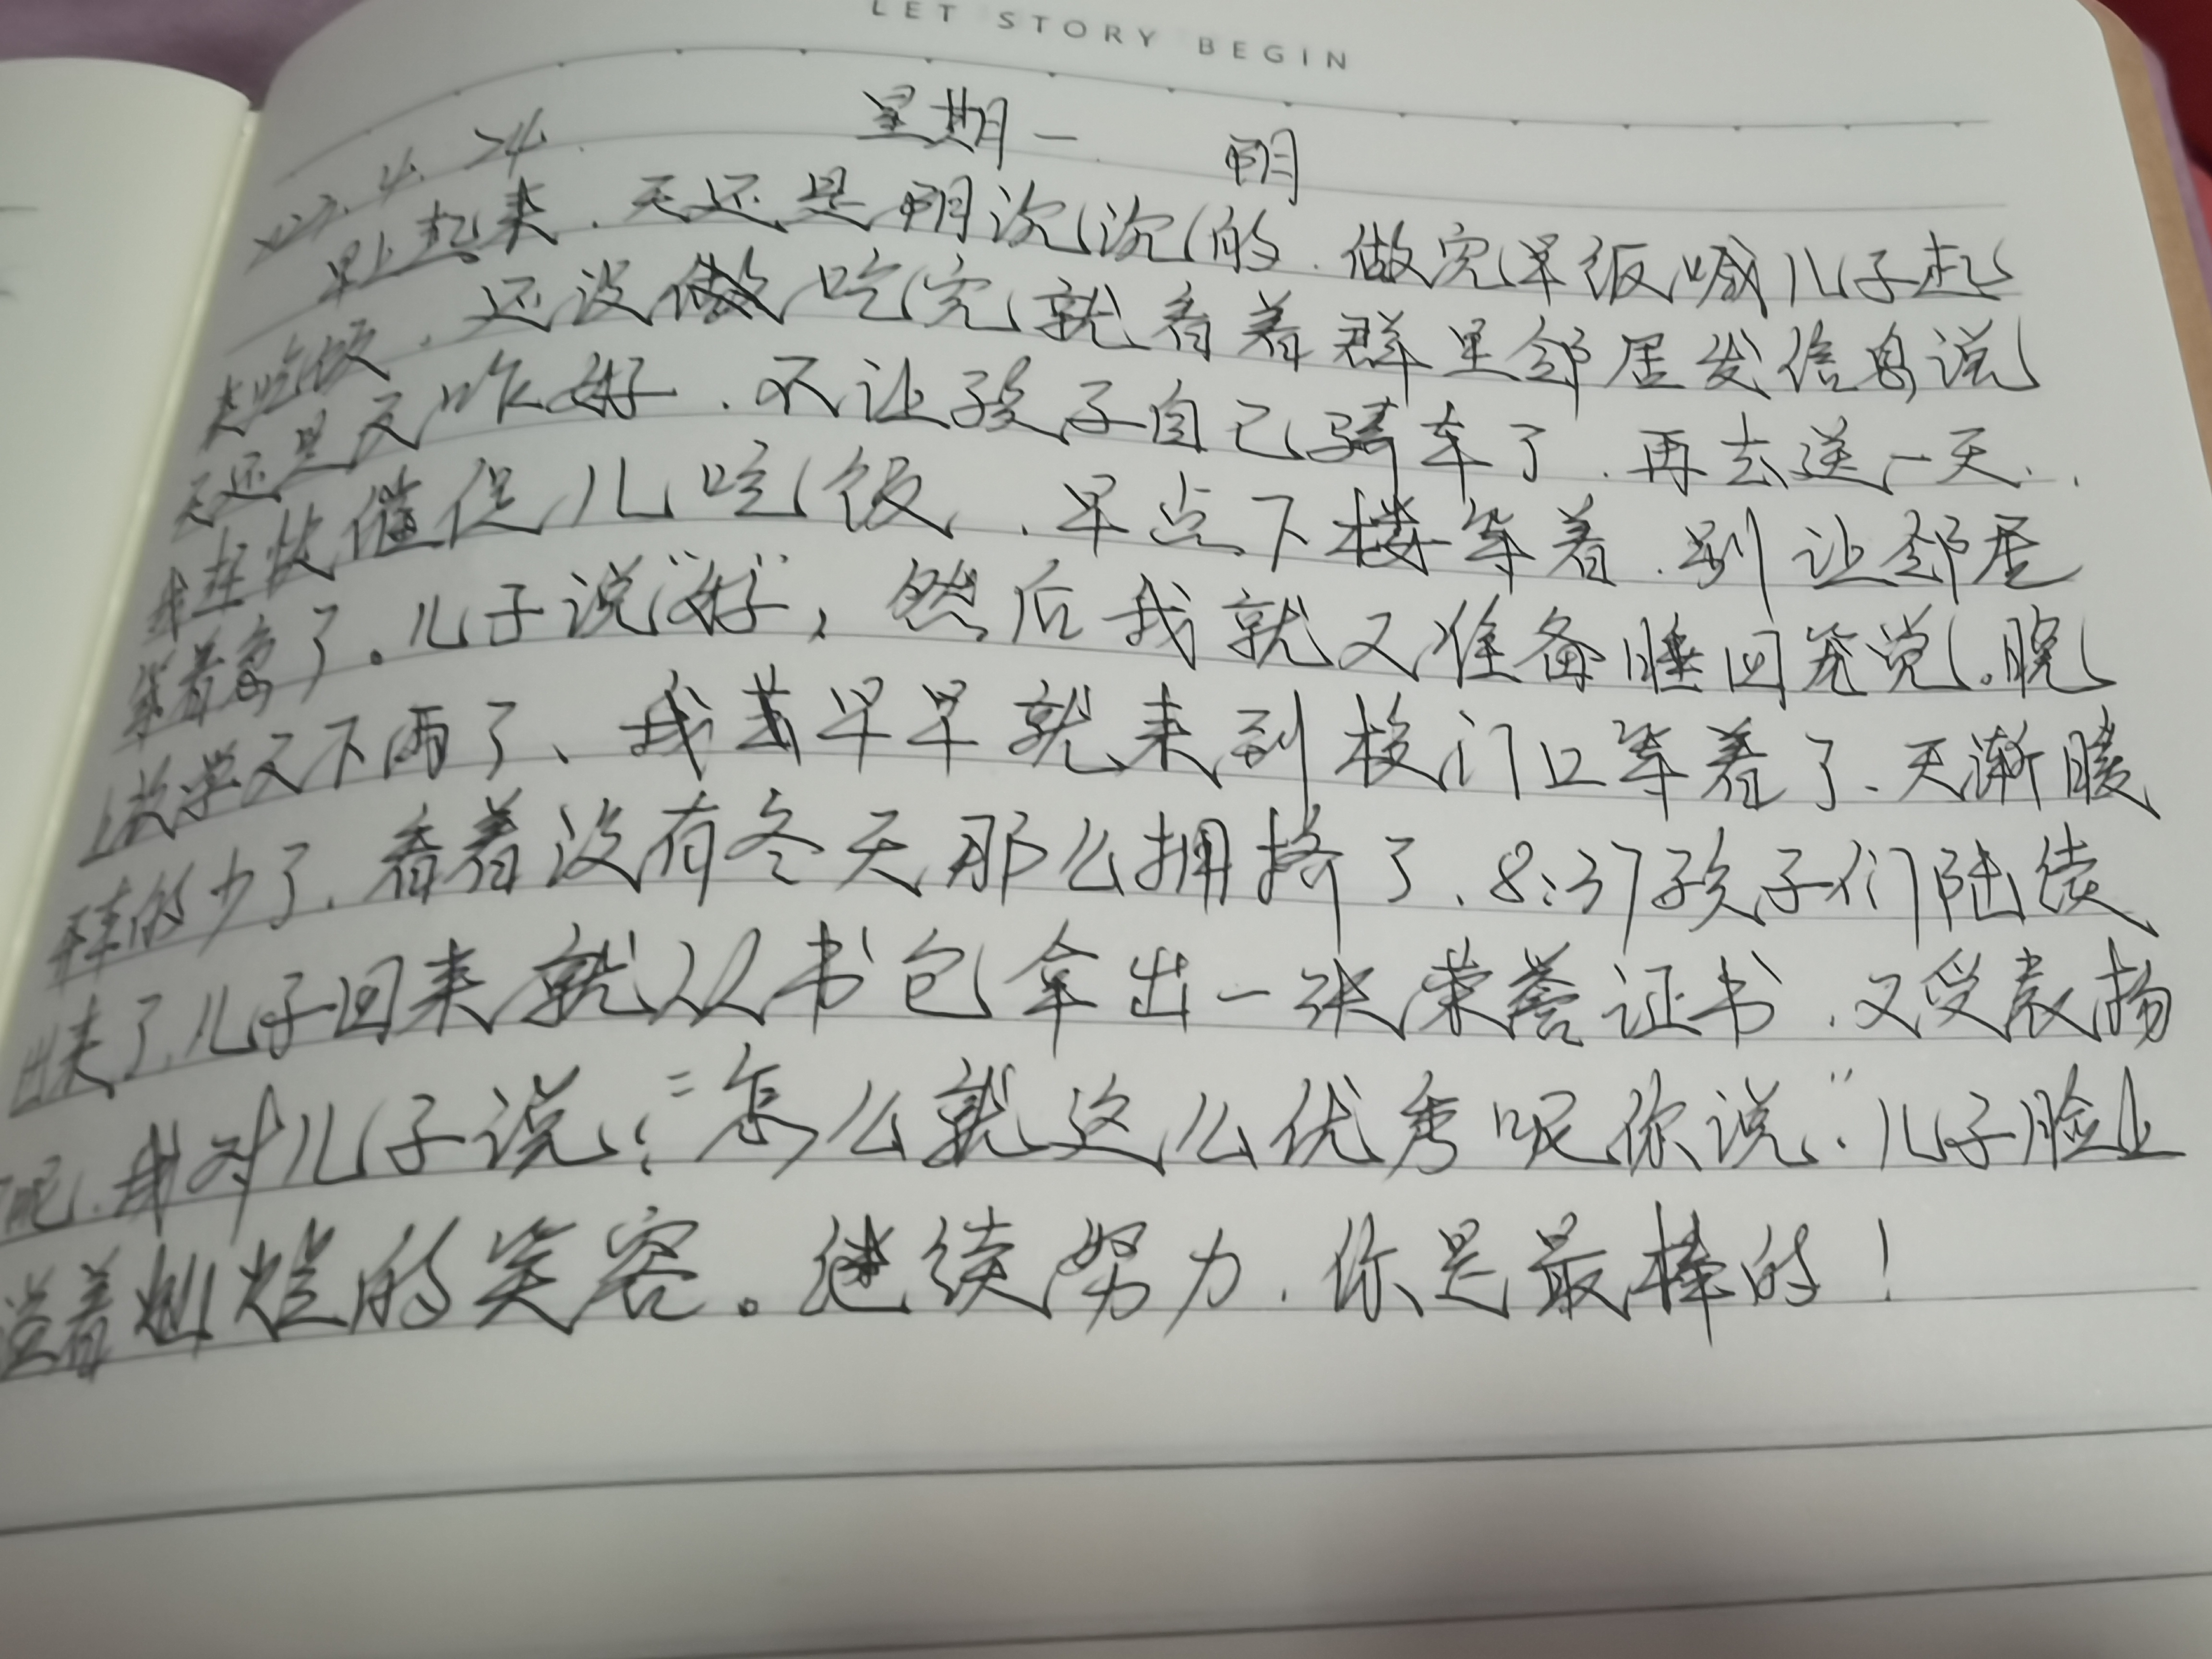 LET STORY BEGIN
4.24. 星期一. 阴
早上起来.天还是阴沉沉的.做完早饭喊儿子起
来吃饭.还没吃完就看着群里邻居发信息说
天还是反咋好.不让孩子自己骑车了.再去送一天.
我赶快催促儿吃饭.早点下楼等着.别让邻居
等着急了。儿子说“好”,然后我就又准备睡回笼觉。晚
上放学又下雨了、我早早就来到校门口等着了.天渐暖
开车的少了.看着没有冬天那么拥挤了.8:37孩子们陆续
出来了.儿子回来就从书包拿出一张荣誉证书.又受表扬
了呢.我对儿子说:“怎么就这么优秀呢你说.”儿子脸上
着灿烂的笑容。继续努力.你是最棒的!